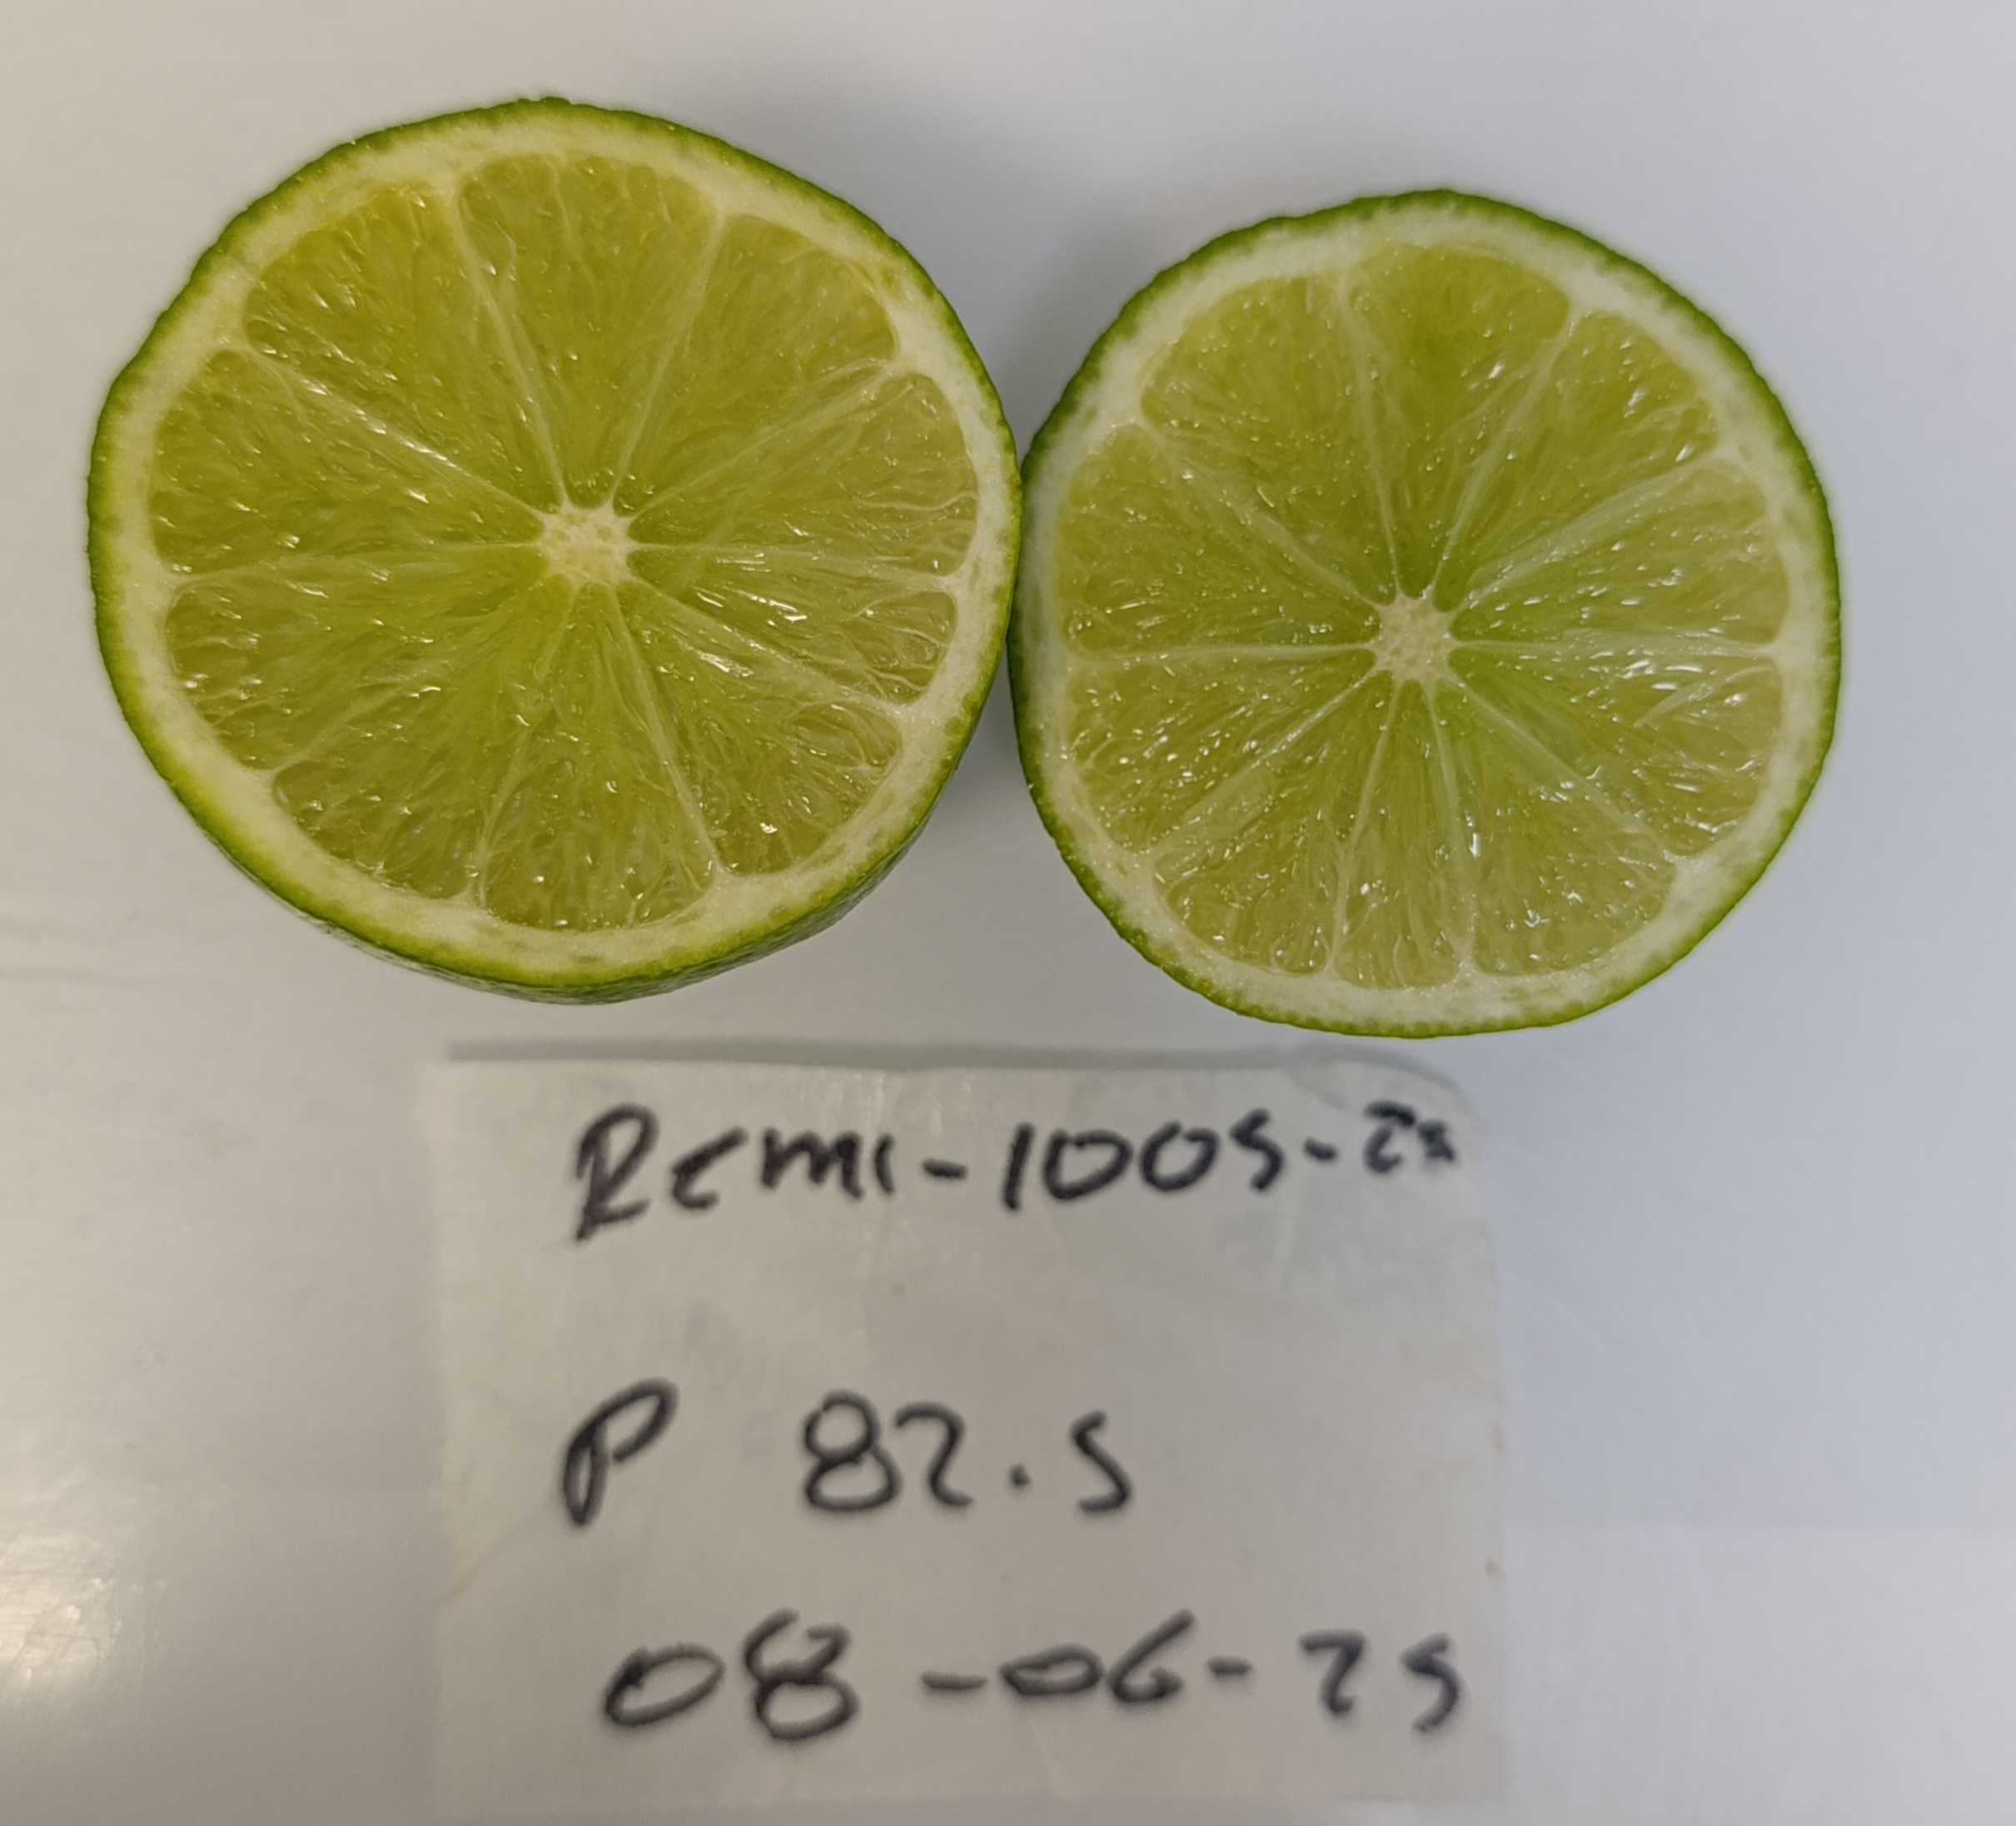 Remi-1005-25
P 82.5
08-06-25